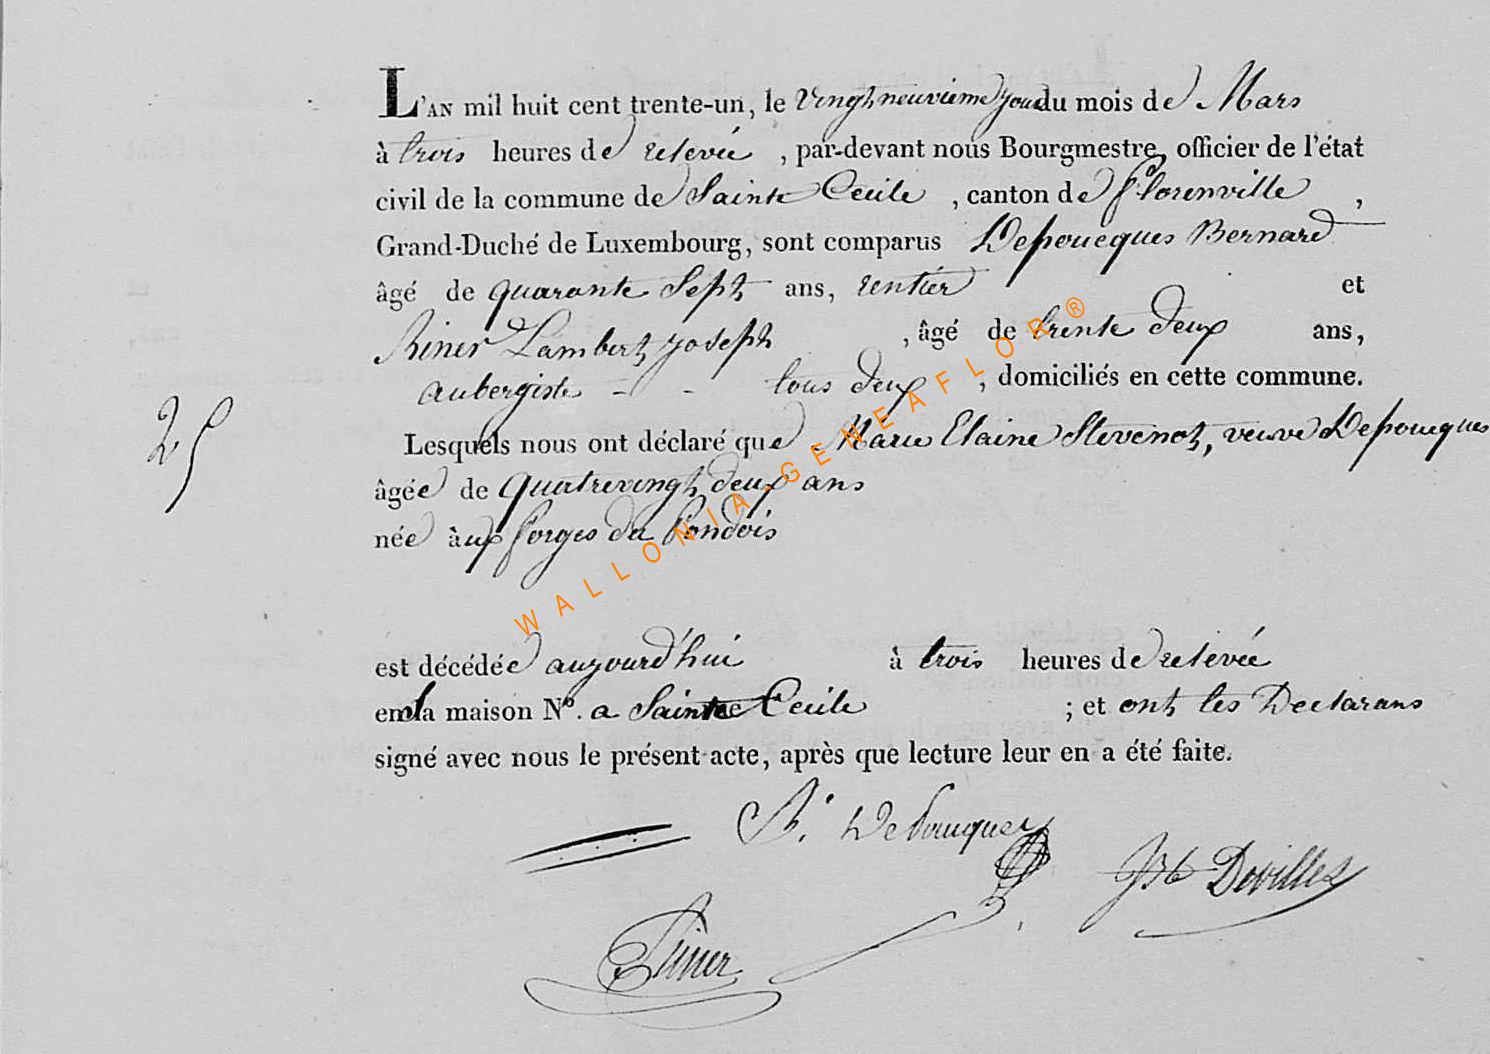 L'AN mil huit cent trente-un, le vingt neuvieme jour du mois de Mars
à trois heures de relevée , par-devant nous Bourgmestre, officier de l'état
civil de la commune de Sainte Cecile , canton de florenville ,
Grand-Duché de Luxembourg, sont comparus Depoucques Bernard
âgé de quarante Sept ans, rentier et
Riner Lambert joseph , âgé de trente deux ans,
aubergiste - - tous deux , domiciliés en cette commune.
25
Lesquels nous ont déclaré que Marie Elaine Stevenot, veuve Depoucques
âgée de quatrevingt deux ans
née àux forges du pondois
est décédée aujourd'hui à trois heures de relevée
en la maison N.º a Sainte Cecile ; et ont les Declarans
signé avec nous le présent acte, après que lecture leur en a été faite.
Depoucques
JB Devilles
Riner
WALLONIA-GENEAFLOR®